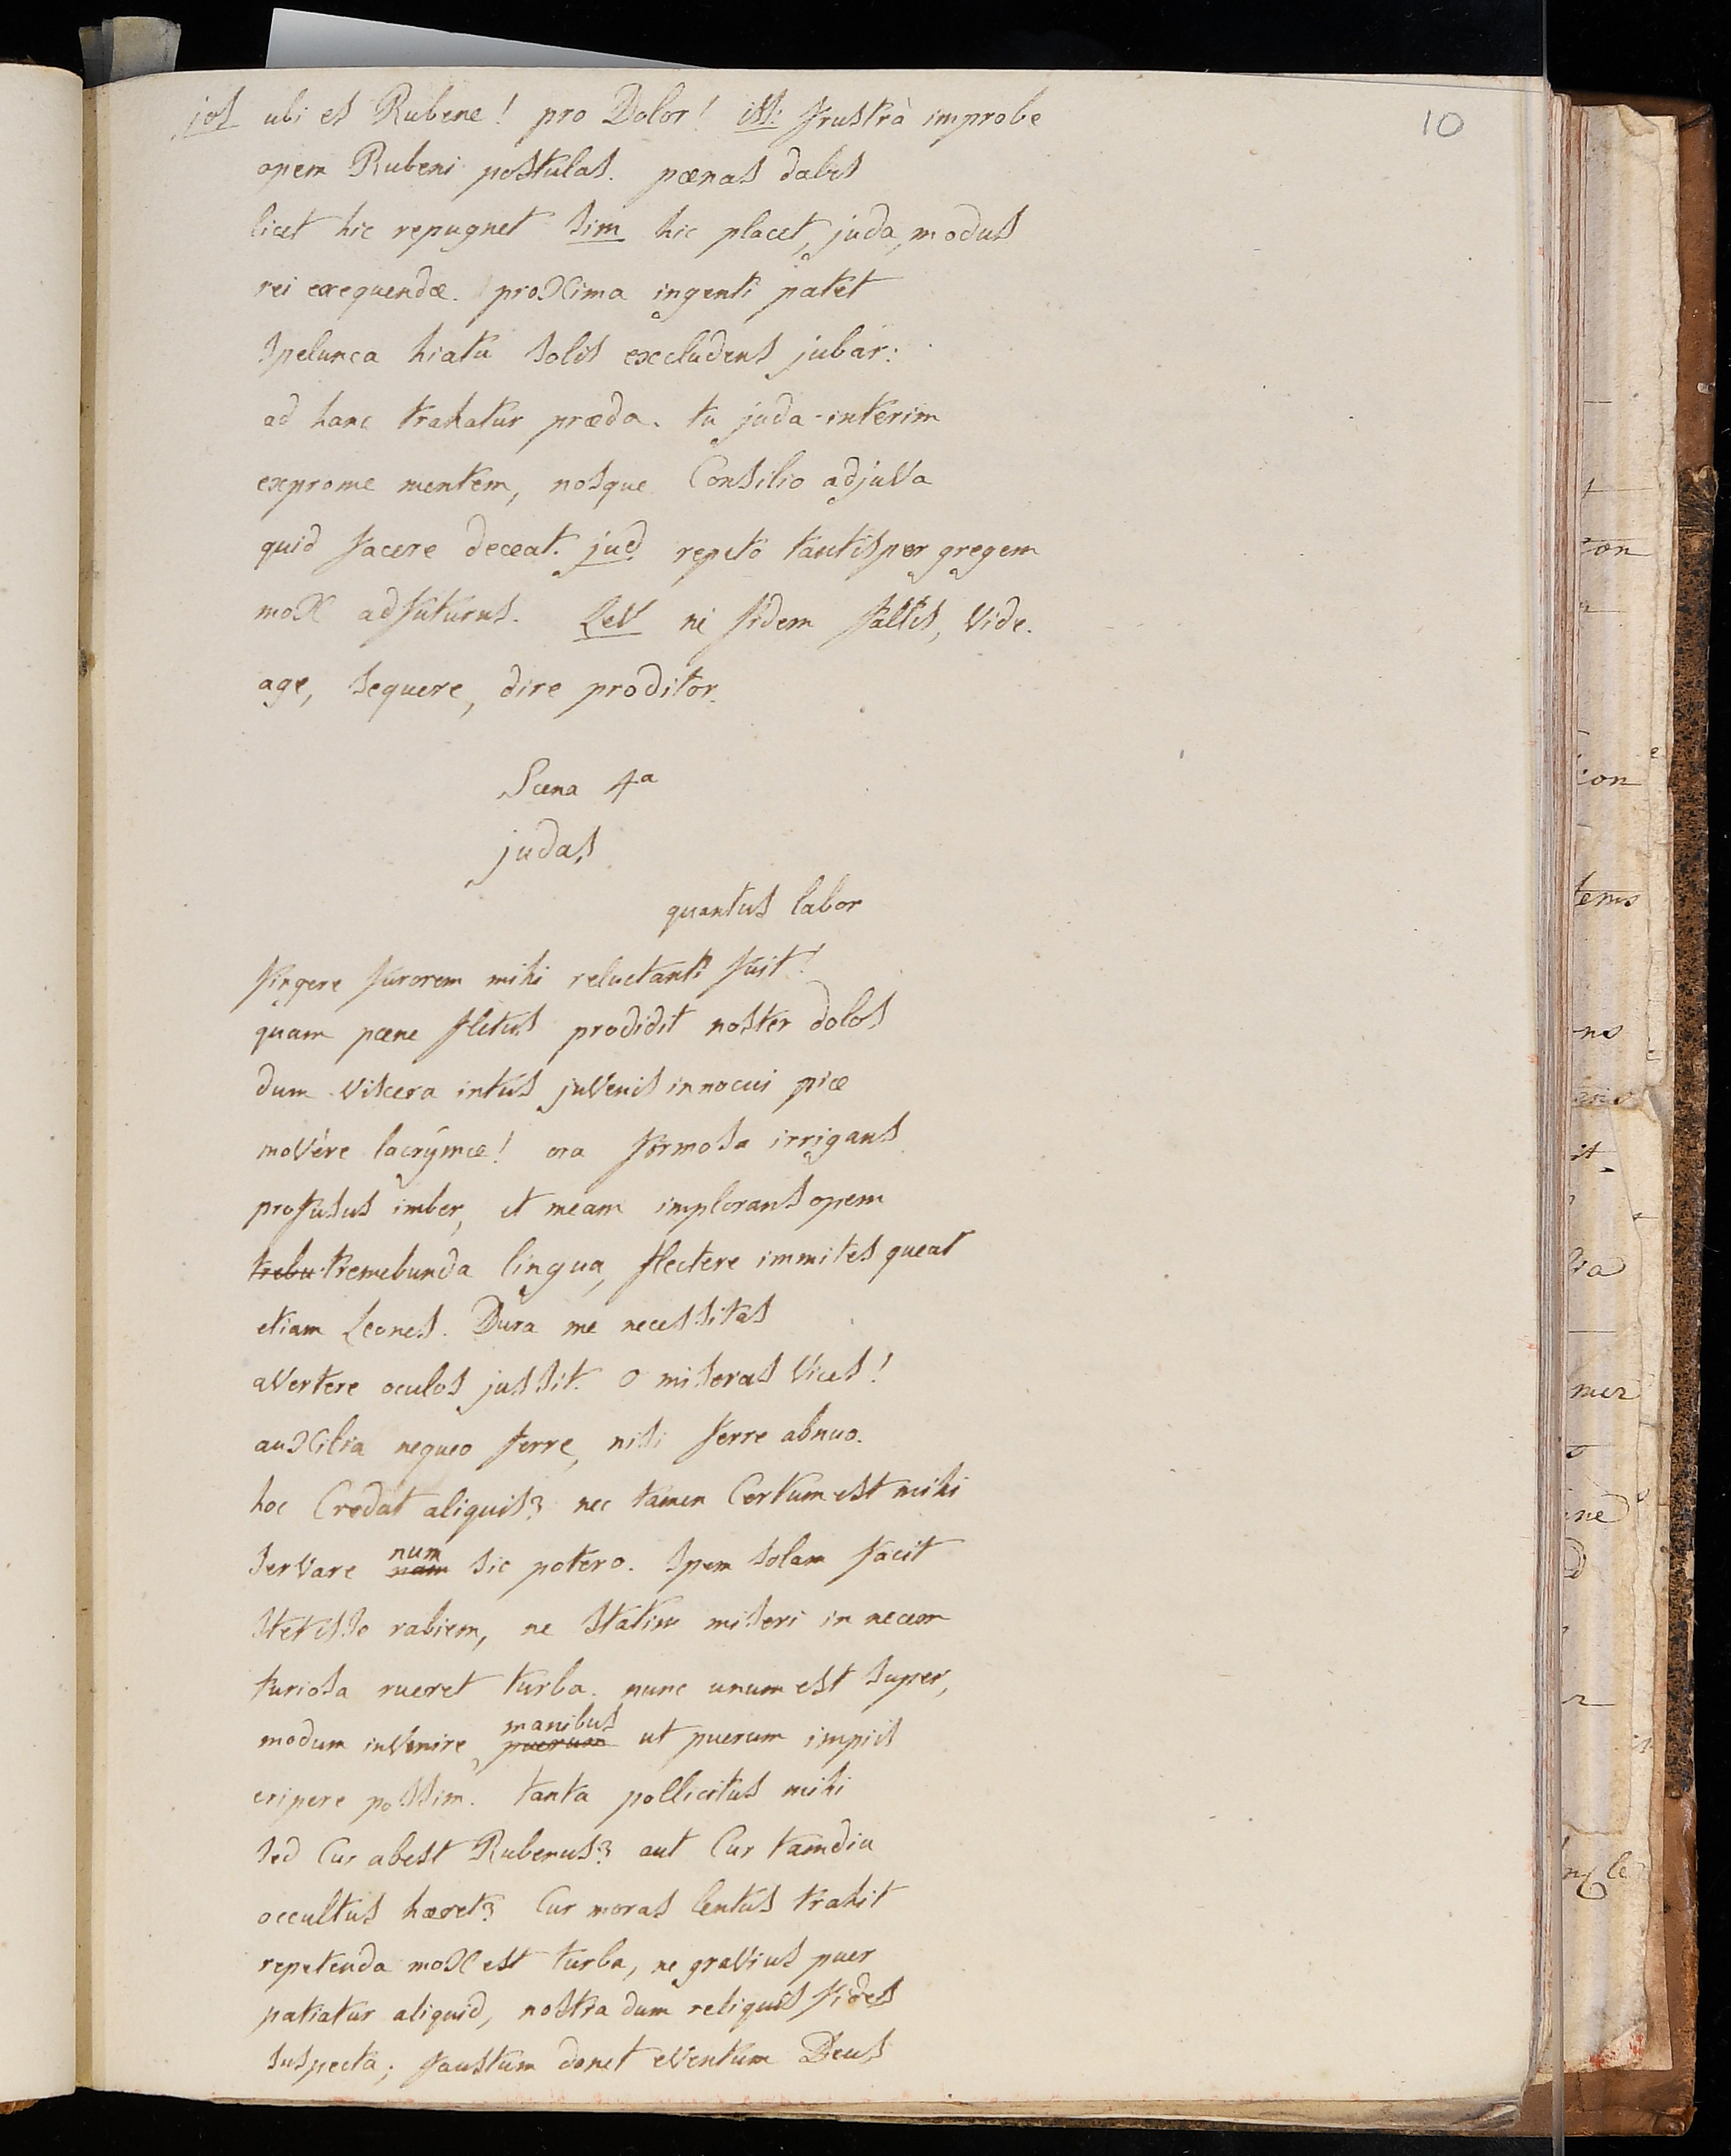 jos ubi es Rubene! pro Dolor! iss: frustrà improbe
10
opem Rubeni postulas. pænas dabis
licet hic repugnet sim hic placet, juda, modus
rei exequendæ. proxima ingenti patet
spelunca hiatu solis excludens jubar:
ad hanc trahatur præda. tu juda interim
exprome mentem, nosque Consilio adjuva
quid facere deceat. jud repeto tantisper gregem
mox adfuturus. Lev ni fidem fallis, vide.
age, sequere, dire proditor.
Scena 4a
judas
quantus labor
fingere furorem mihi reluctanti fuit!
quam pæne fletus prodidit noster dolos
dum viscera intus juvenis innocui piæ
movêre lacrymæ! ora formosa irrigans
profusus imber, et meam implorans opem
trebu tremebunda lingua, flectere immites queat
etiam Leones. Dura me necessitas
avertere oculos jussit. o miseras vices!
auxilia nequeo ferre, nisi ferre abnuo.
hoc Credat aliquis? nec tamen Certum est mihi
num
servare nam sic potero. spem solam facit
stetisse rabiem, ne statim miseri in necem
furiosa rueret turba. nunc unum est super,
manibus
modum invenire puerum ut puerum impiis
eripere possim. tanta pollicitus mihi
sed Cur abest Rubenus? aut Cur tamdiu
occultus hæret? Cur moras lentus trahit
repetenda mox est turba, ne gravius puer
patiatur aliquid, nostra dum reliquis fides
suspecta; faustum donet eventum Deus